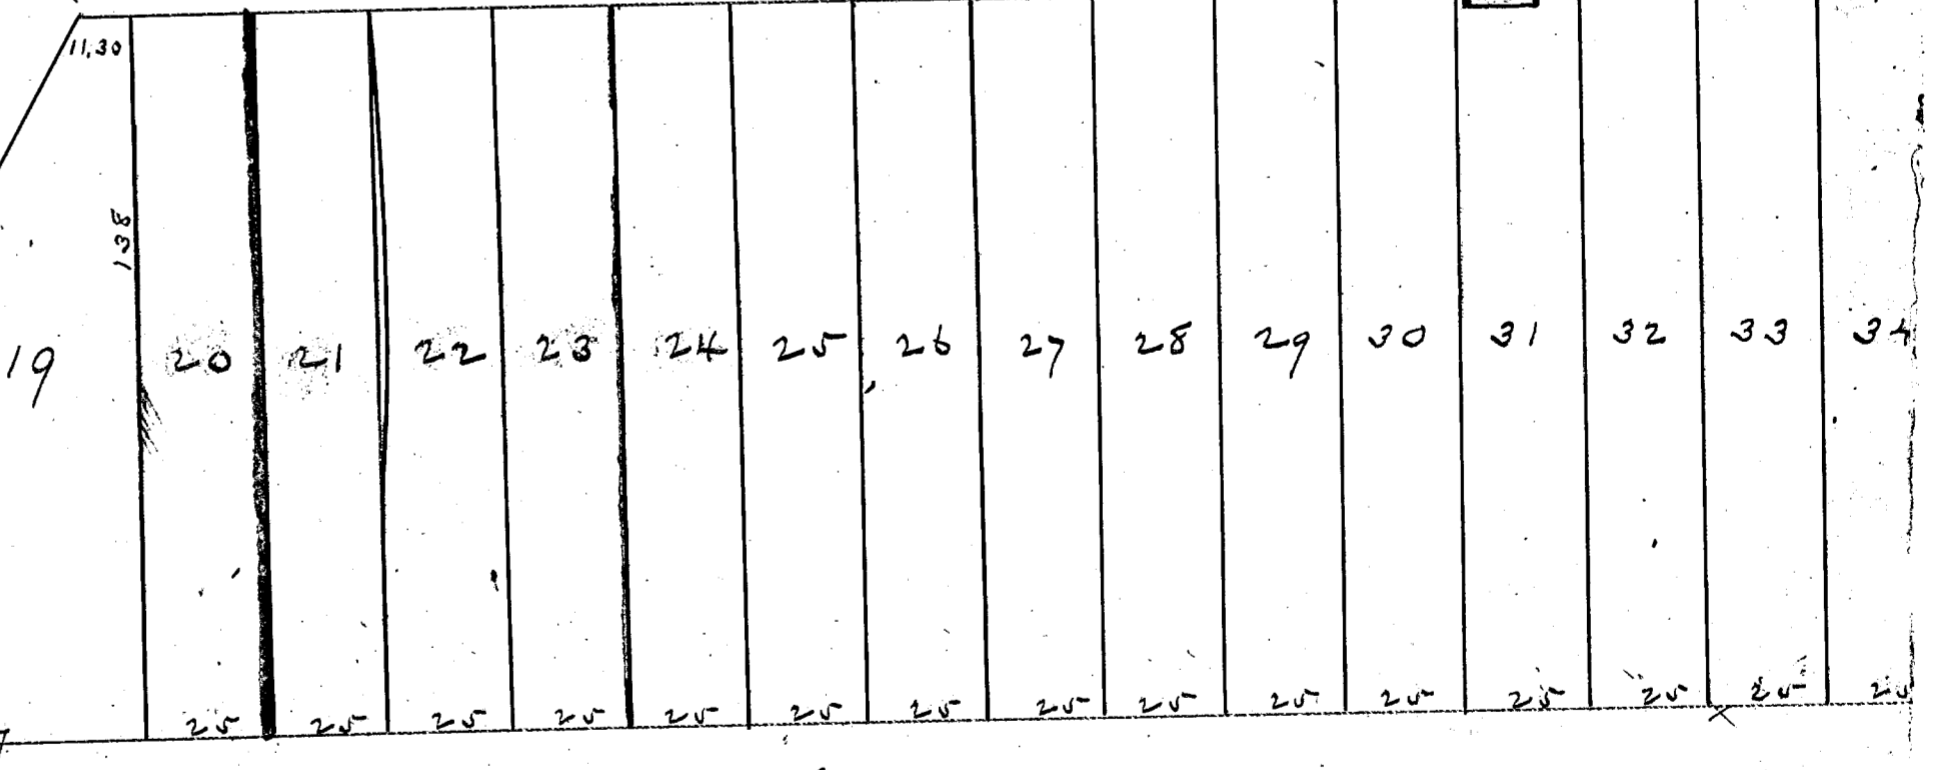 11.30
138
19 20 21 22 23 24 25 26 27 28 29 30 31 32 33 34
25 25 25 25 25 25 25 25 25 25 25 25 25 25 25